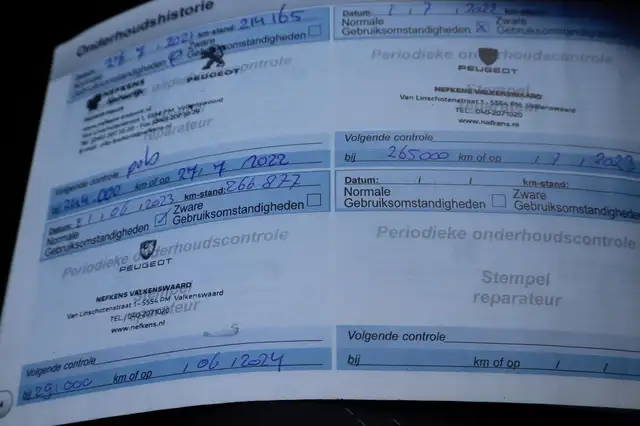 Onderhoudshistorie
Datum: 27.7.2021 km-stand: 214165
Normale
Gebruiksomstandigheden
Zware
Gebruiksomstandigheden
Periodieke onderhoudscontrole
PEUGEOT
NEFKENS
reparateur
Volgende controle
bij km of op 27.7.2022
Datum: 1.7.2022
Normale
Gebruiksomstandigheden
Zware
Gebruiksomstandigheden
Periodieke onderhoudscontrole
PEUGEOT
NEFKENS VALKENSWAARD
Van Linschotenstraat 1 - 5554 PM Valkenswaard
TEL. 040-2071020
www.nefkens.nl
reparateur
Volgende controle
bij 265000 km of op /7/2023
Datum: 21/06/2023 km-stand: 266.877
Normale
Gebruiksomstandigheden
Zware
Gebruiksomstandigheden
Periodieke onderhoudscontrole
PEUGEOT
NEFKENS VALKENSWAARD
Van Linschotenstraat 1 - 5554 PM Valkenswaard
Stempel
TEL. 040-2071020
reparateur
www.nefkens.nl
Volgende controle
bij 29.000 km of op /06/2024
Datum: / / km-stand:
Normale
Gebruiksomstandigheden
Zware
Gebruiksomstandigheden
Periodieke onderhoudscontrole
Stempel
reparateur
Volgende controle
bij km of op / /